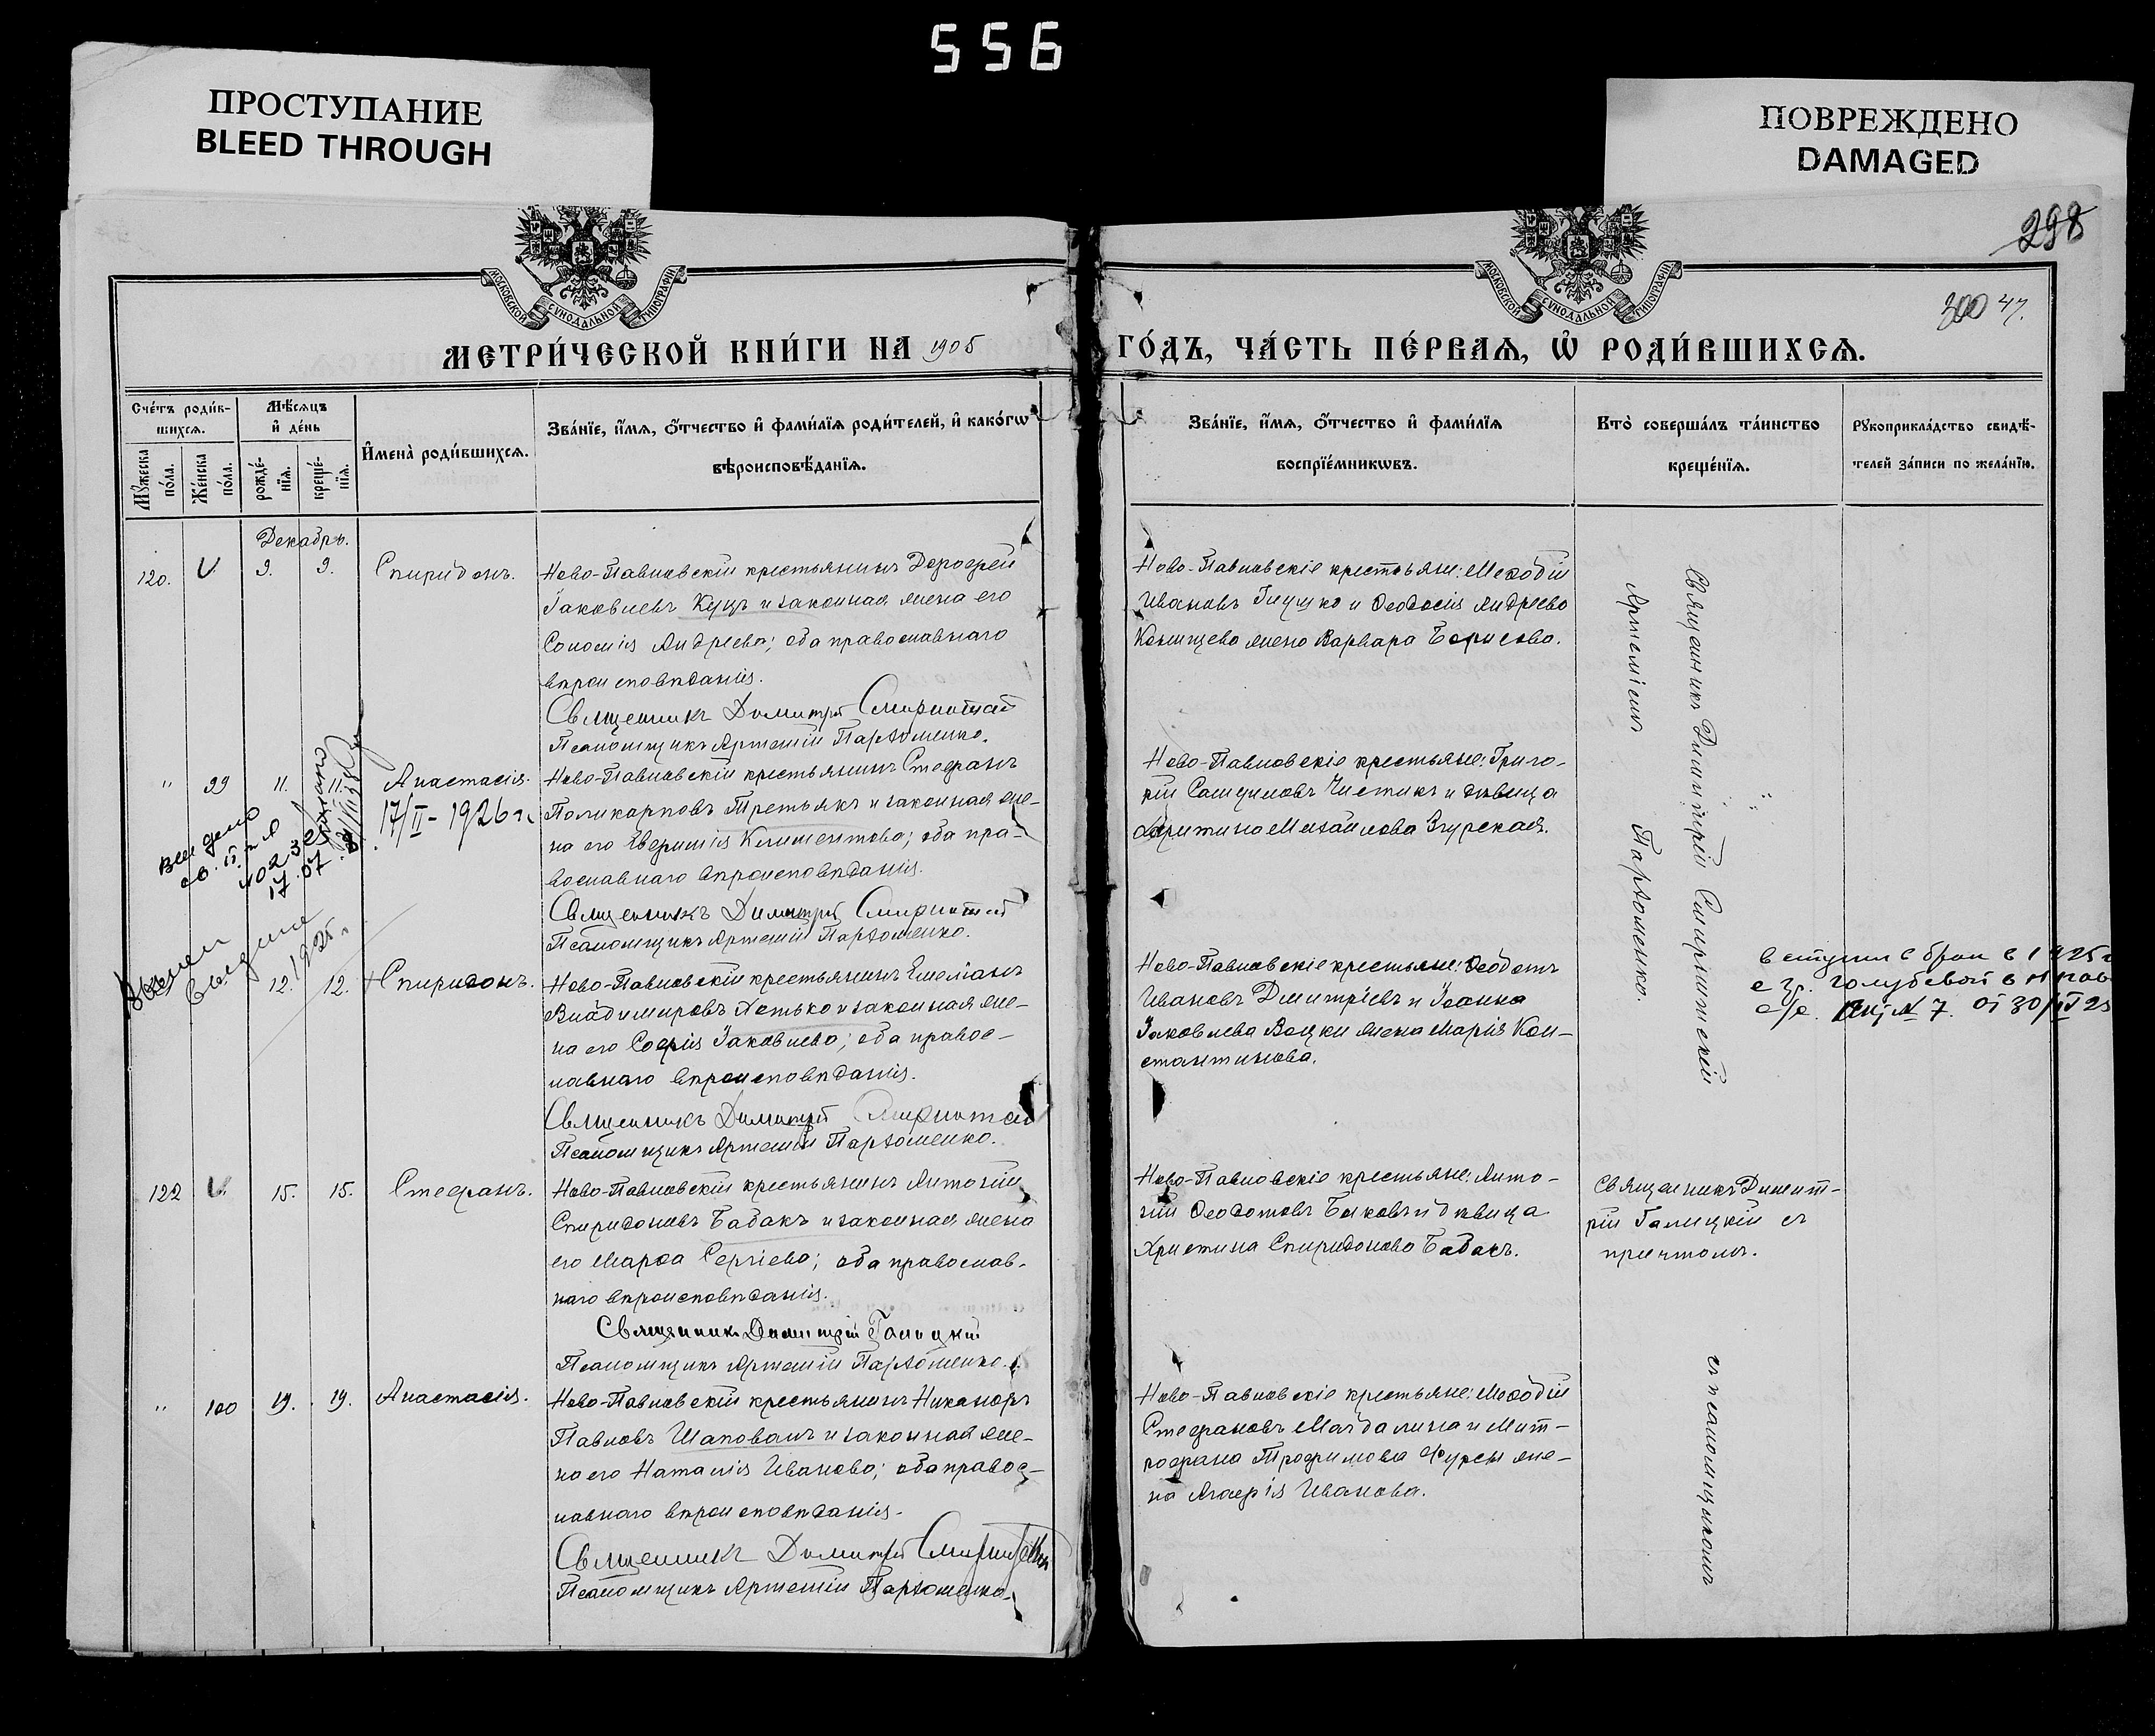 556
ПРОСТУПАНИЕ
BLEED THROUGH
ПОВРЕЖДЕНО
DAMAGED
298
300 47.
МОСКОВСКОЙ СѴНОДАЛЬНОЙ ТИПОГРАФІИ
МОСКОВСКОЙ СѴНОДАЛЬНОЙ ТИПОГРАФІИ
МЕТРИ́ЧЕСКОЙ КНИ́ГИ НА 1905
ГО́ДЪ, ЧА́СТЬ ПЕ́РВАЯ, Ѡ҆ РОДИ́ВШИХСѦ.
Сче́тъ роди́в-
шихсѧ.
Мꙋ́жеска по́ла.
Же́нска по́ла.
Мѣ́сѧцъ
и҆ де́нь
рожде́-
нїѧ.
креще́-
нїѧ.
И҆мена̀ роди́вшихсѧ.
Зва́нїе, и҆́мѧ, ѻ҆́тчество и҆ фами́лїѧ роди́телей, и҆ како́гѡ
вѣроисповѣ́данїѧ.
Зва́нїе, и҆́мѧ, ѻ҆́тчество и҆ фами́лїѧ
воспрїе́мникѡвъ.
Кто̀ соверша́лъ та́инство
креще́нїѧ.
Рꙋкоприкла́дство свидѣ́-
телей за́писи по жела́нїю.
Декабрь.
120.
9.
9.
Спиридонъ.
Ново-Павловскій крестьянинъ Дорофей
Іаковлевъ Куцъ и законная жена его
Соломія Андреева; оба православнаго
вѣроисповѣданія.
Священникъ Димитрій Смирнитскій
Псаломщикъ Артемій Пархоменко.
Ново-Павловскіе крестьяне: Мефодій
Ивановъ Глушко и Феодосія Андреево
жена Варвара Борисова.
"
99
11.
11.
Анастасія.
17/II - 1926 г.
Ново-Павловскій крестьянинъ Стефанъ
Поликарповъ Третьякъ и законная же-
на его Евфимія Климентова; оба пра-
вославнаго вѣроисповѣданія.
Священникъ Димитрій Смирнитскій
Псаломщикъ Артемій Пархоменко.
Ново-Павловскіе крестьяне: Григо-
рій Чистикъ и дѣвица
Михаилова Згурская.
1925 г.
12.
12.
Спиридонъ.
Ново-Павловскій крестьянинъ Емеліанъ
Владимировъ Хотько и законная же-
на его Софія Іаковлева; оба правос-
лавнаго вѣроисповѣданія.
Священникъ Димитрій Смирнитскій
Псаломщикъ Артемій Пархоменко.
Ново-Павловскіе крестьяне: Феодотъ
Ивановъ Дмитріевъ и Іоанна
Іаковлева Воцки жена Марія Кон-
стантинова.
Священникъ Димитрій Смирнитскій
Артеміемъ Пархоменко.
вступил в брак в 1925 г
с гр. Голубевой в
с/с. Акт № 7. от 30/
122
15.
15.
Стефанъ.
Ново-Павловскій крестьянинъ Антоній
Спиридоновъ Бабакъ и законная жена
его Марфа Сергіева; оба православ-
наго вѣроисповѣданія.
Священникъ Димитрій Галицкій
Псаломщикъ Артемій Пархоменко.
Ново-Павловскіе крестьяне: Анто-
ній Феодотовъ Быковъ и дѣвица
Христина Спиридонова Бабакъ.
Священникъ Димит-
рій Галицкій съ
причтомъ.
"
100
19.
19.
Анастасія.
Ново-Павловскій крестьянинъ Никаноръ
Павловъ Шаповалъ и законная же-
на его Наталія Иванова; оба правос-
лавнаго вѣроисповѣданія.
Священникъ Димитрій Смирнитскій
Псаломщикъ Артемій Пархоменко.
Ново-Павловскіе крестьяне: Мефодій
Стефановъ Магдалина и Мит-
рофана Трофимова Фурсы же-
на Агафія Иванова.
съ псаломщикомъ